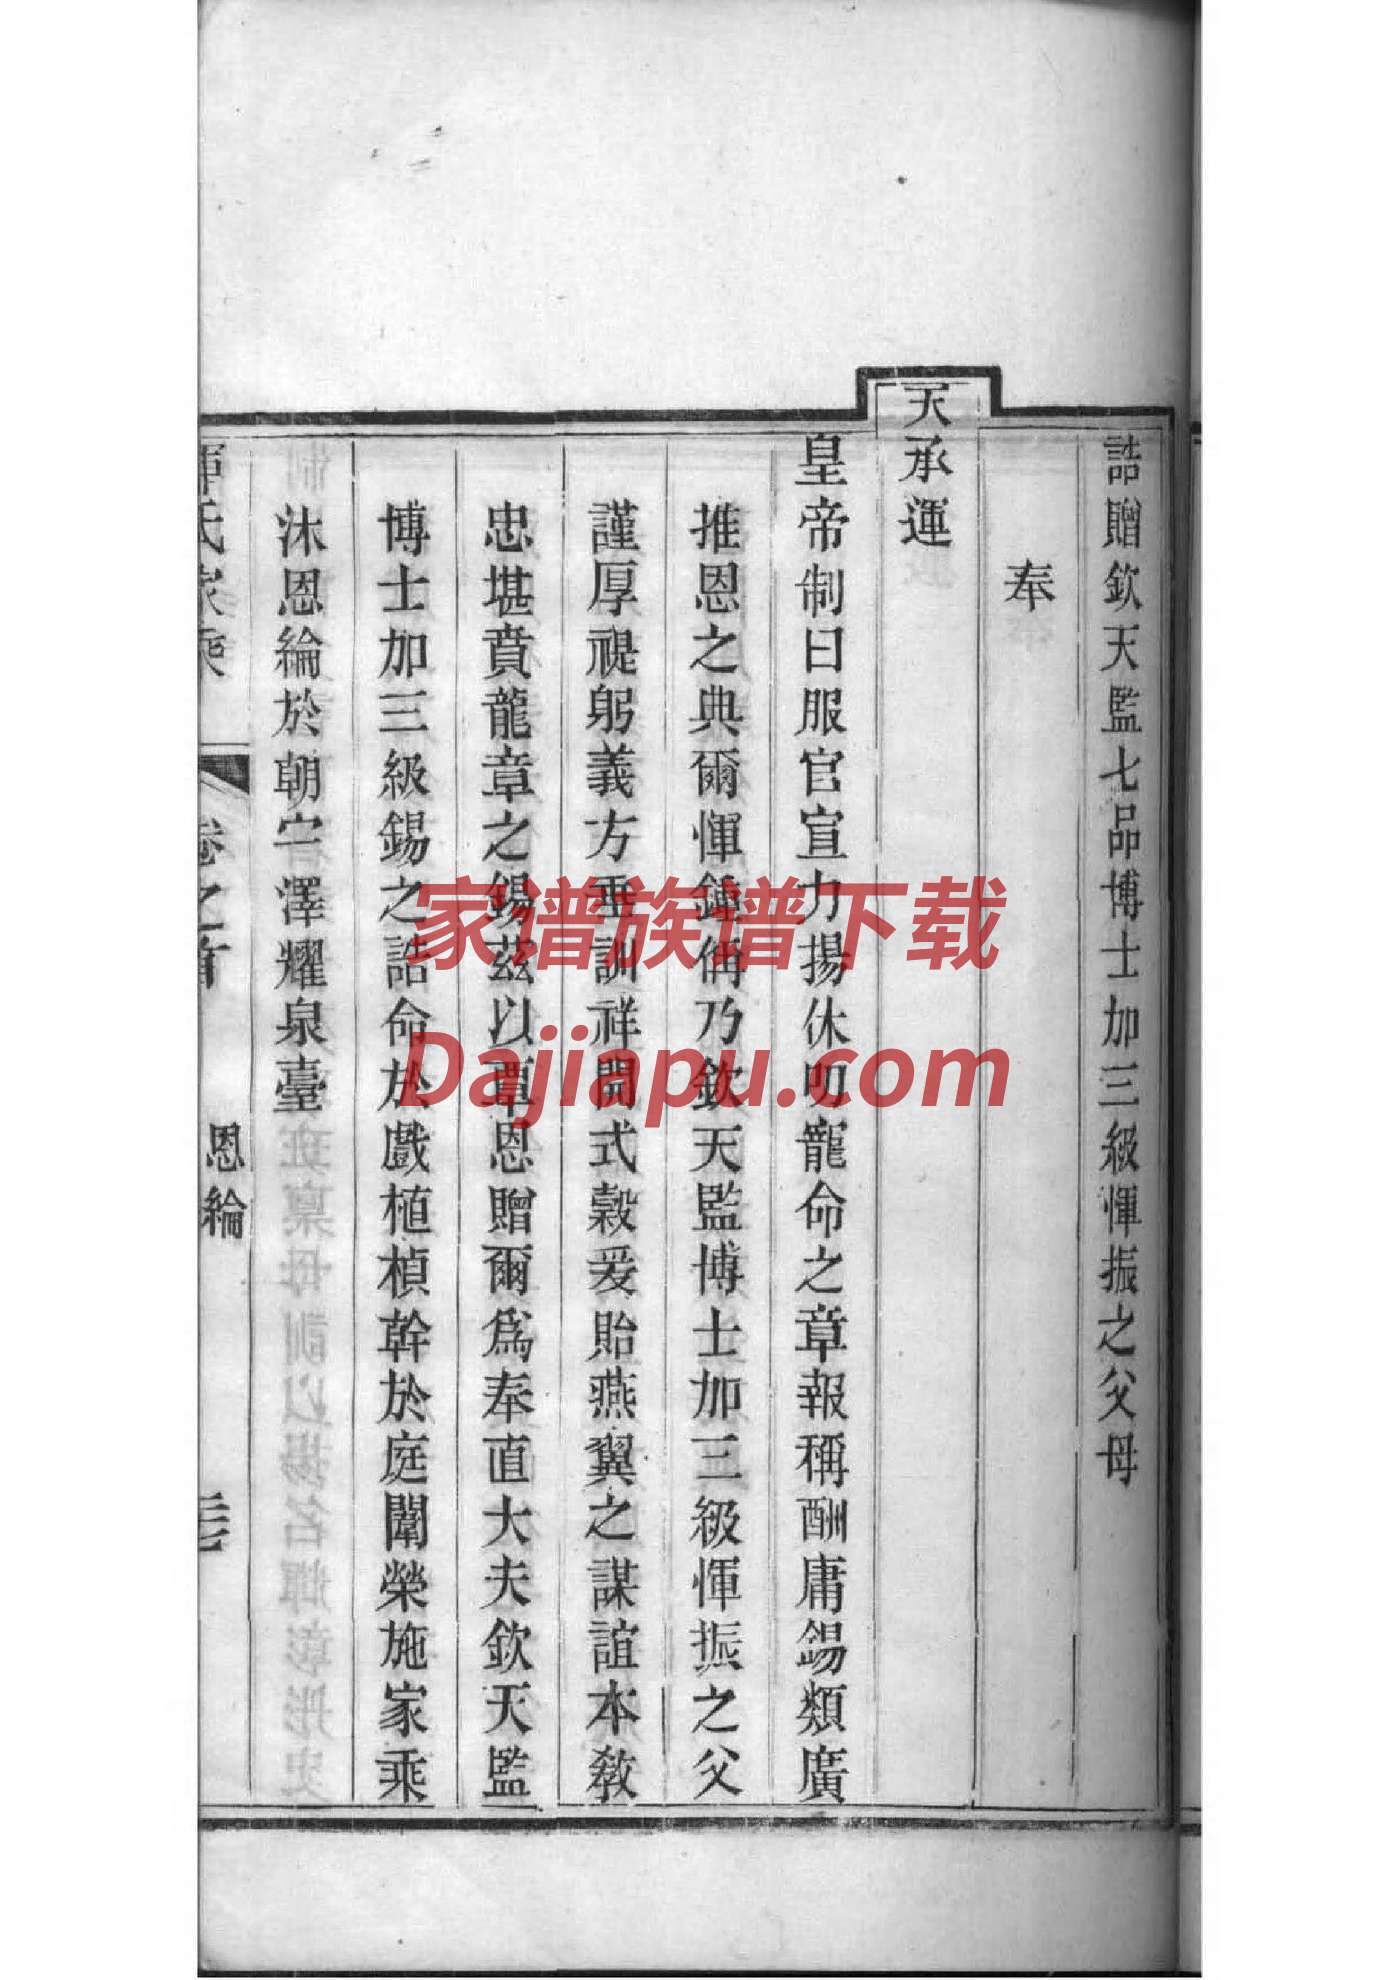 誥贈欽天監七品博士加三級惲振之父母
奉
天承運
皇帝制曰服官宣力揚休叨寵命之章報稱酬庸錫類廣
推恩之典爾惲鍾偁乃欽天監博士加三級惲振之父
謹厚禔躬義方垂訓祥開式穀爰貽燕翼之謀誼本教
忠堪賁龍章之錫茲以覃恩贈爾爲奉直大夫欽天監
博士加三級錫之誥命於戲植楨幹於庭闈榮施家乘
沐恩綸於朝宁澤耀泉臺
惲氏家乘 卷之首 恩綸
家谱族谱下载
Dajiapu.com